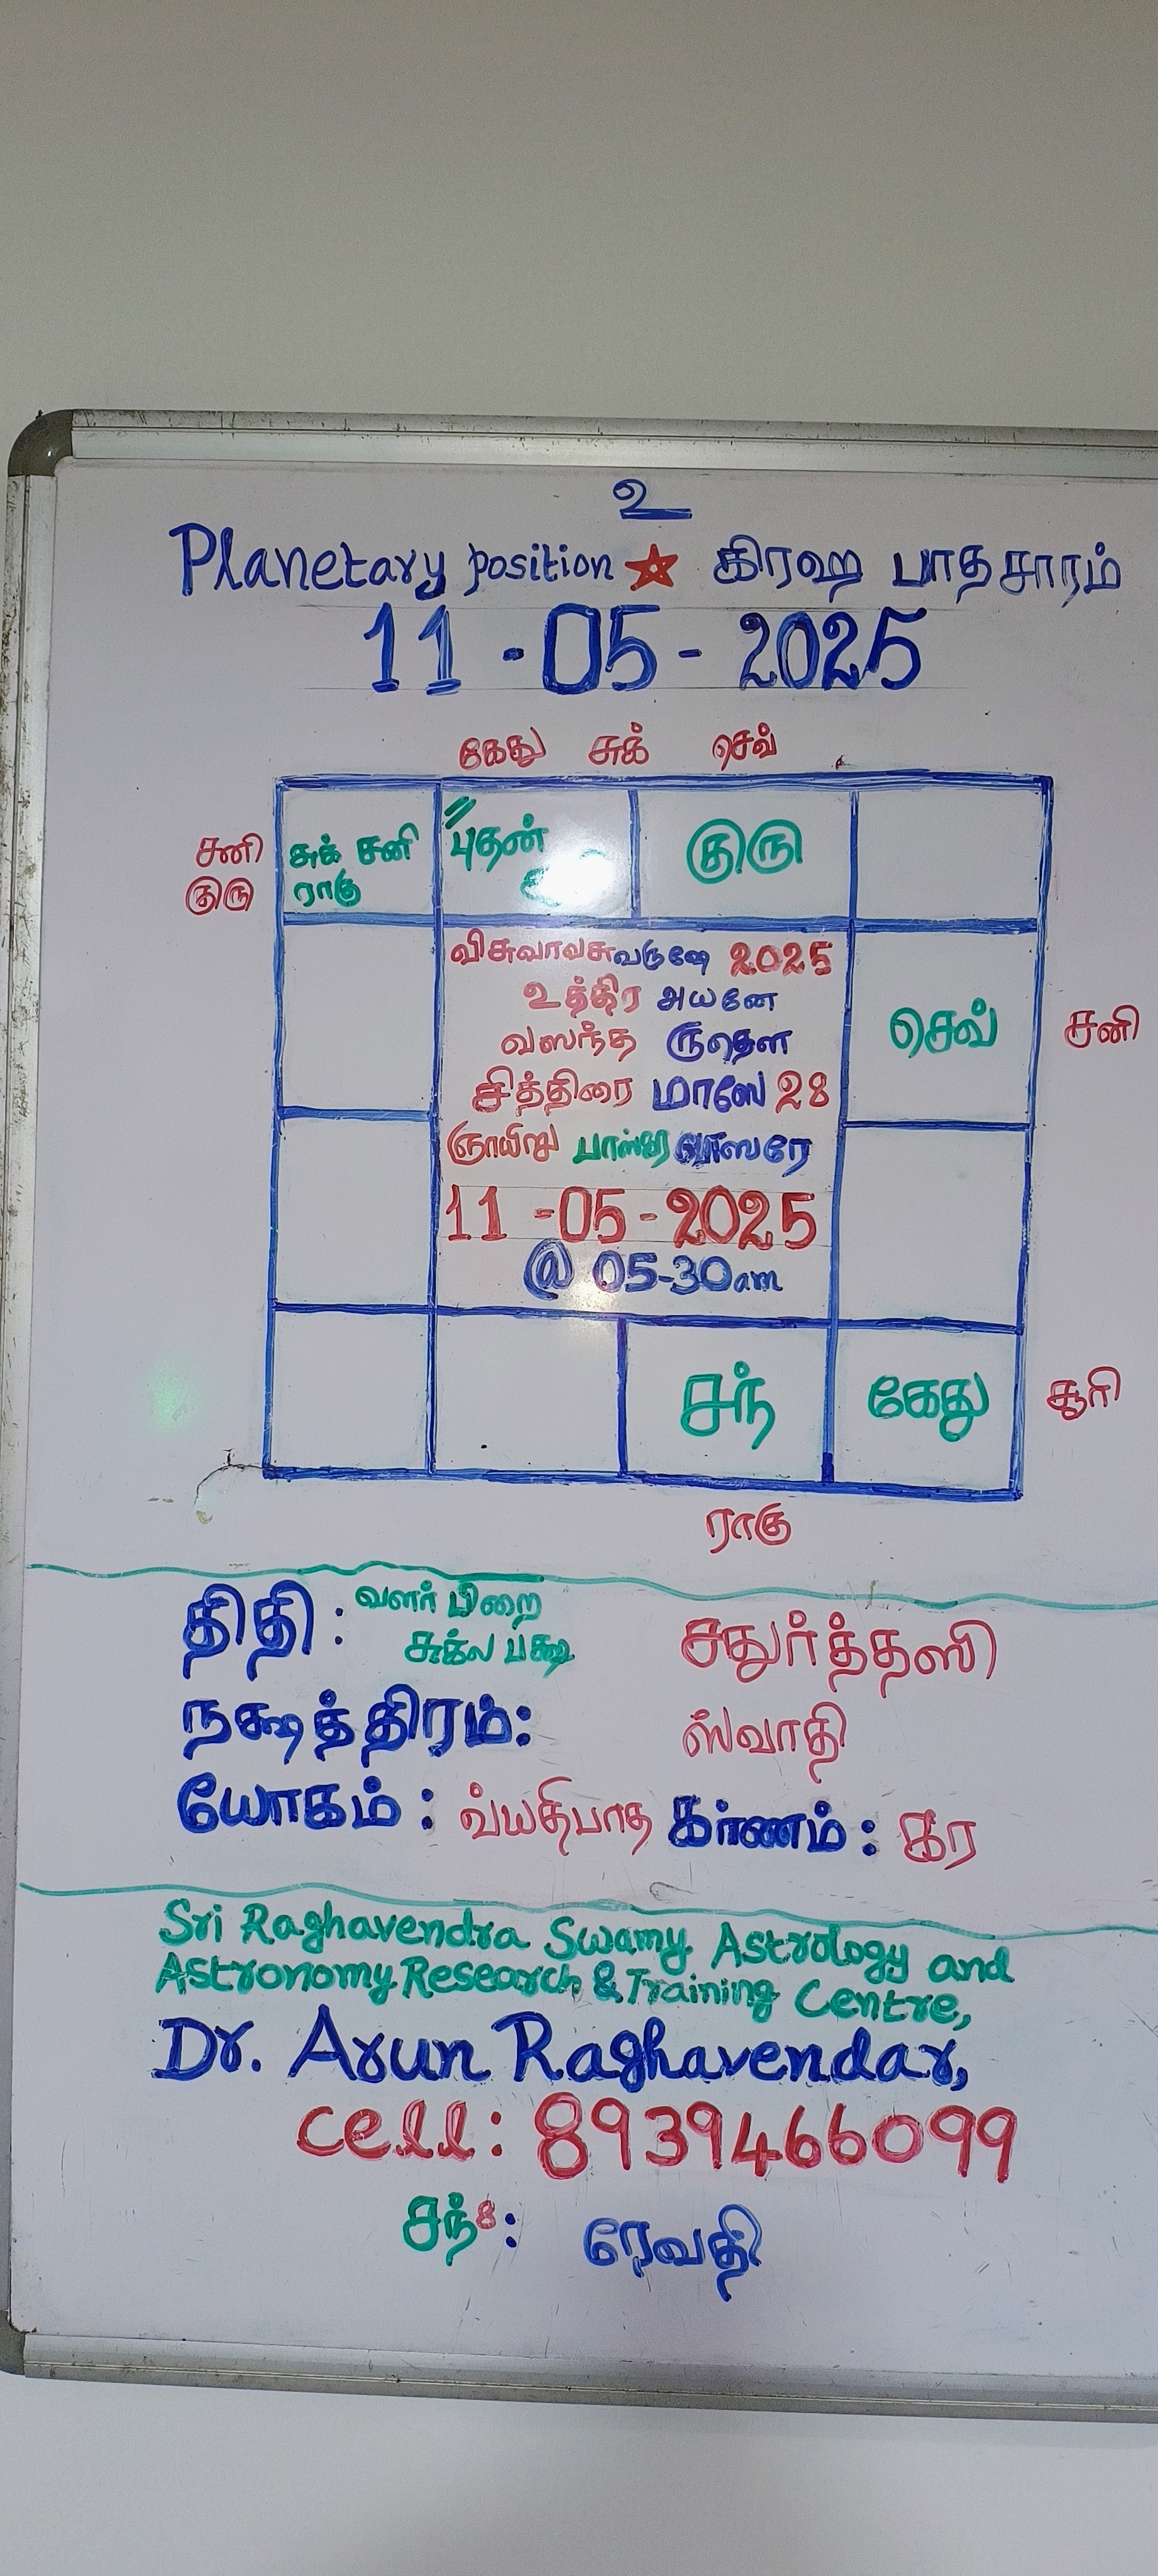 உ
Planetary position ☆ கிரஹ பாதசாரம்
11-05-2025
கேது சுக் செவ்
சனி
குரு
சுக் சனி
ராகு
புதன்
குரு
விசுவாவசுவருஷே 2025
உத்திர அயனே
வஸந்த ருதௌ
சித்திரை மாஸே 28
ஞாயிறு வாஸரே
11-05-2025
@ 05-30am
செவ்
சனி
சந்
கேது
சூரி
ராகு
திதி: வளர் பிறை
சுக்ல பக்ஷ சதுர்த்தஸி
நக்ஷத்திரம்: ஸ்வாதி
யோகம்: வ்யதிபாத கர்ணம்: கர
Sri Raghavendra Swamy Astrology and
Astronomy Research & Training Centre,
Dr. Arun Raghavendar,
cell: 8939466099
சந்8: ரேவதி